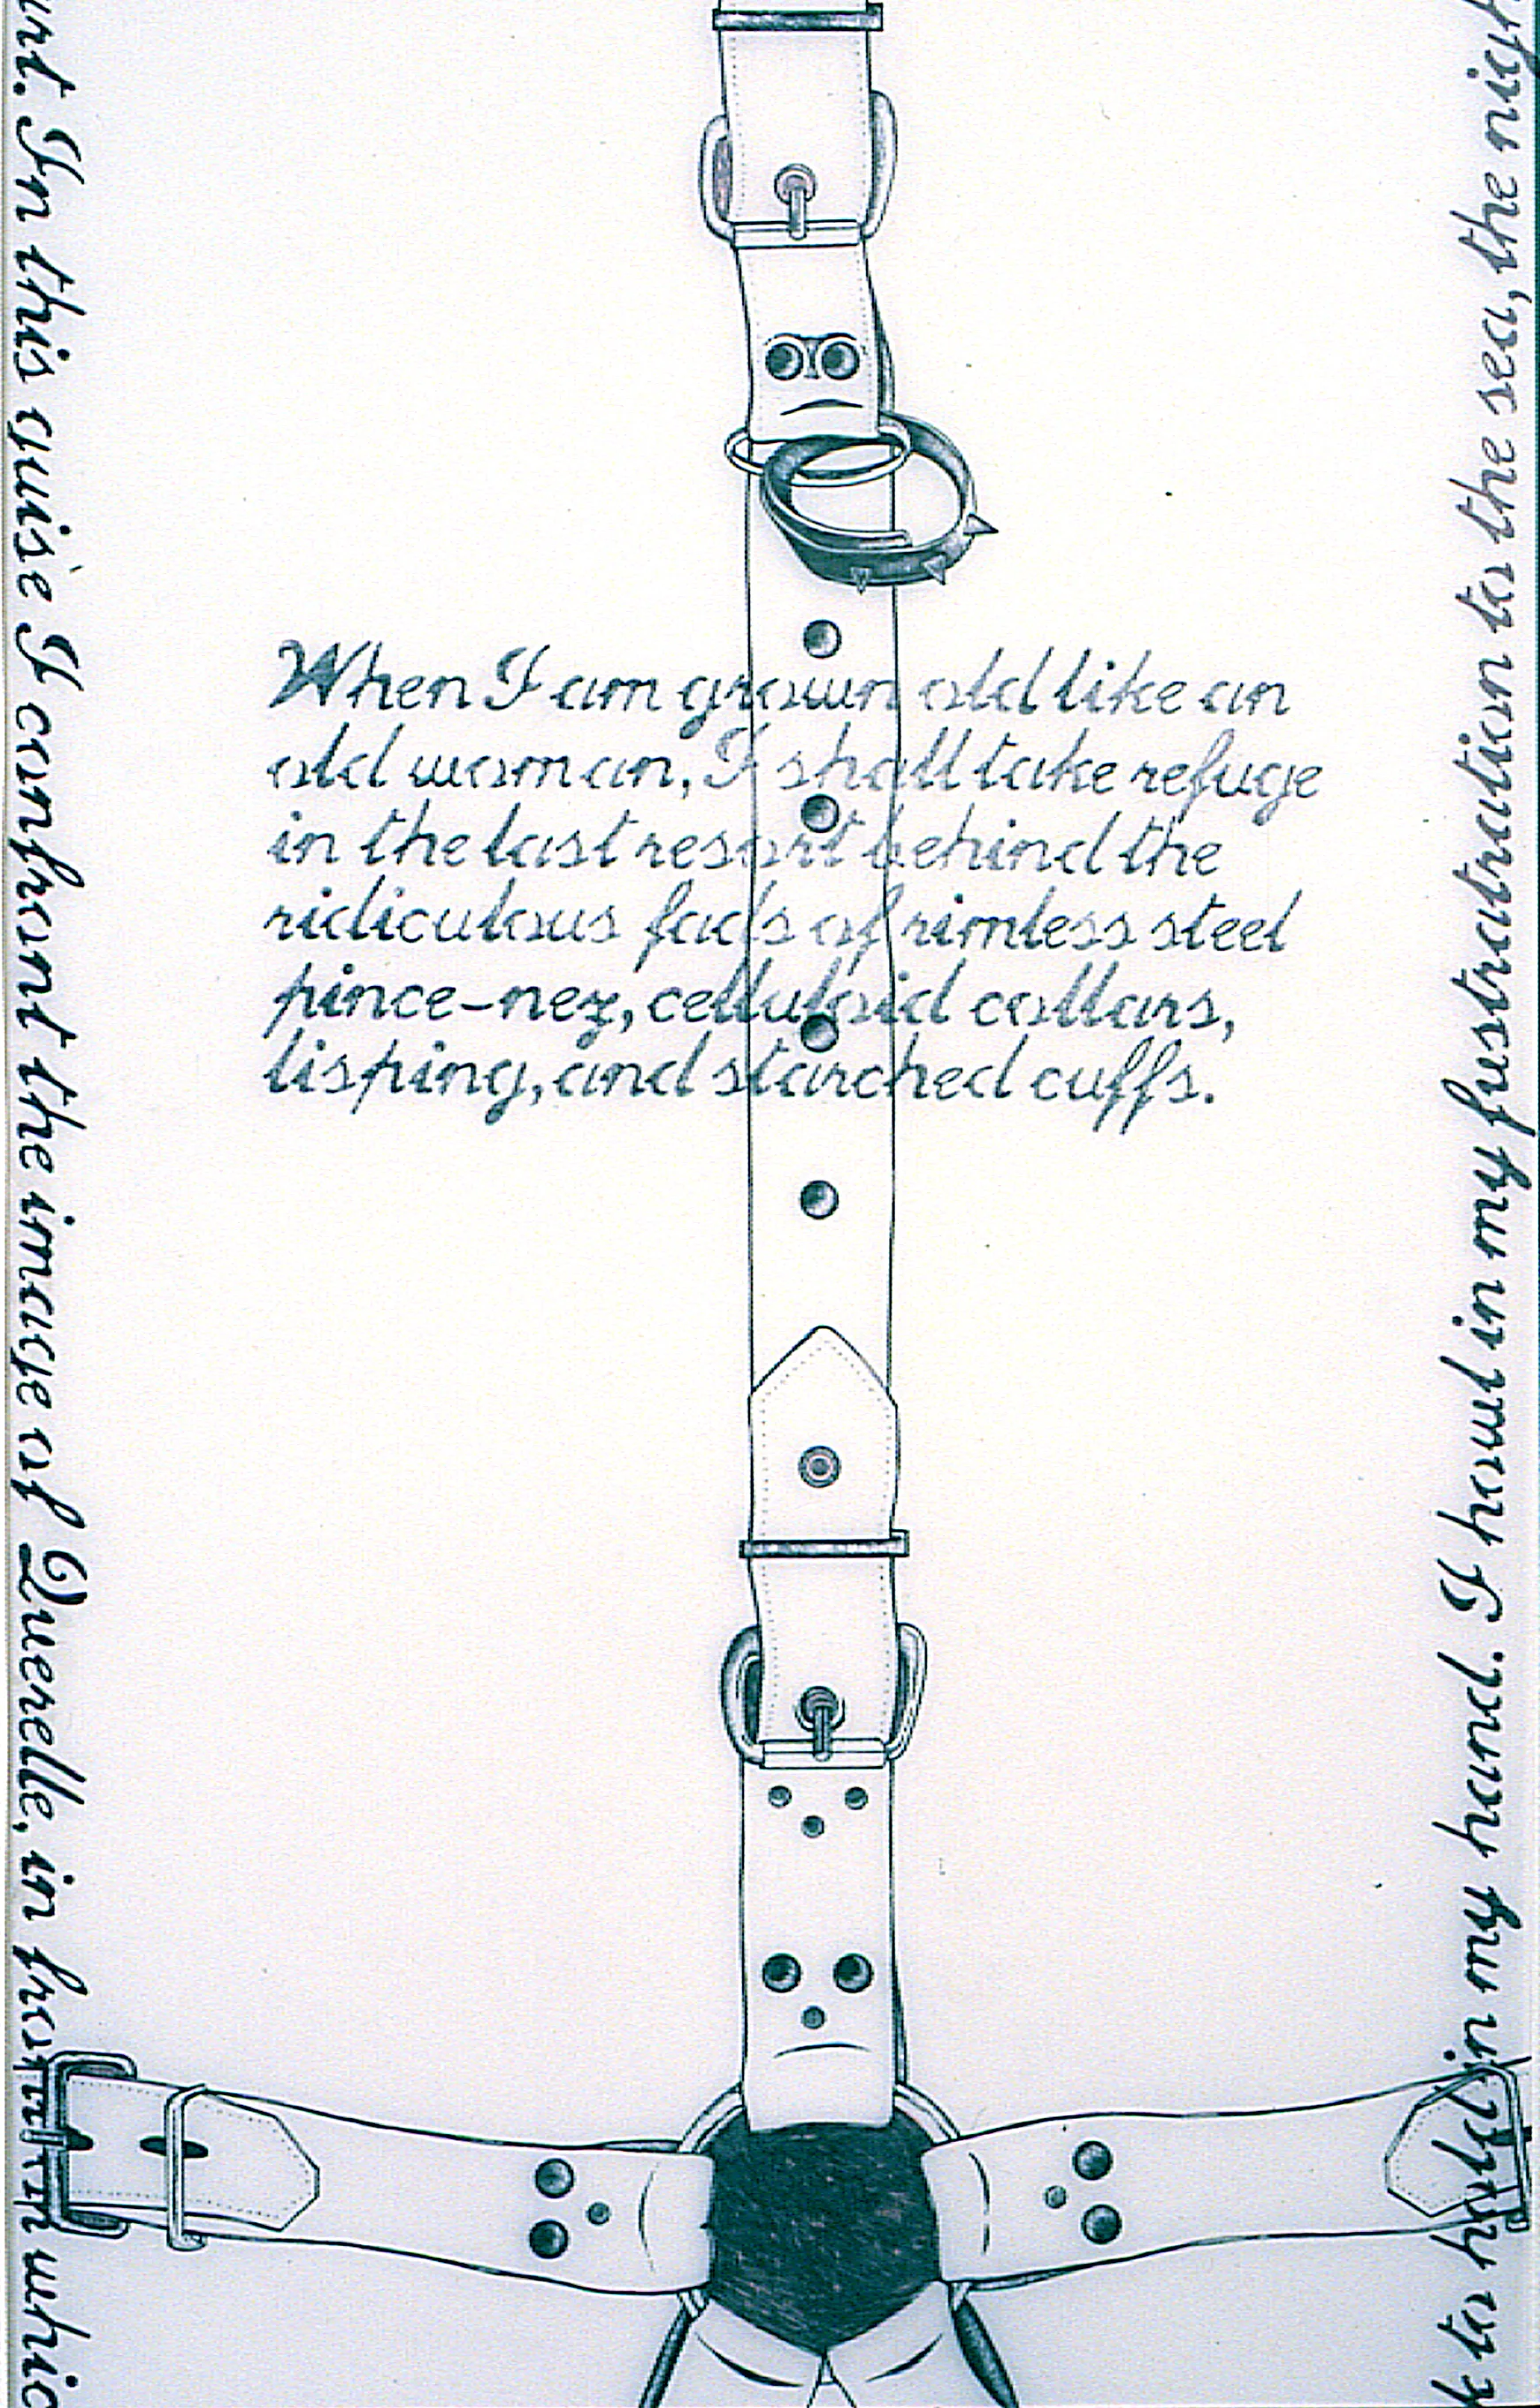 In this guise I confront the image of Querelle, in
When I am grown old like an
old woman, I shall take refuge
in the last resort behind the
ridiculous fads of rimless steel
pince-nez, celluloid collars,
lisping, and starched cuffs.
to hold in my hand. I howl in my frustratration to the sea, the